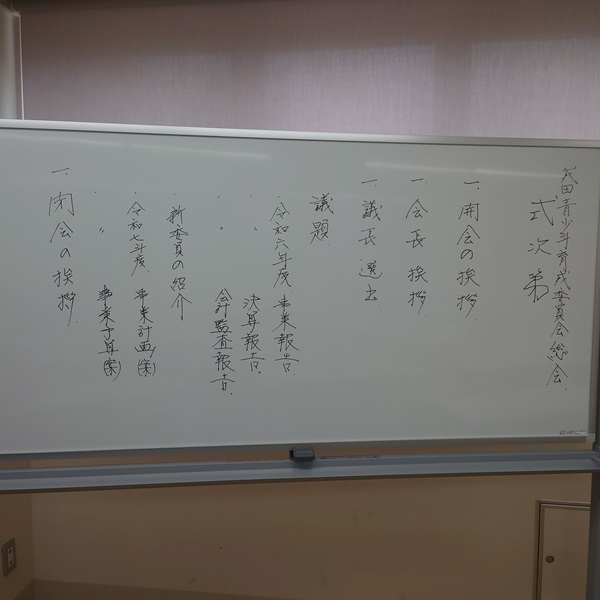 武田青少年育成委員会総会
式次第
一、開会の挨拶
一 会長挨拶
一 議長選出
議題
・令和六年度 事業報告
・〃 決算報告
会計監査報告
・新委員の紹介
・令和七年度 事業計画(案)
・〃 事業予算(案)
一 閉会の挨拶